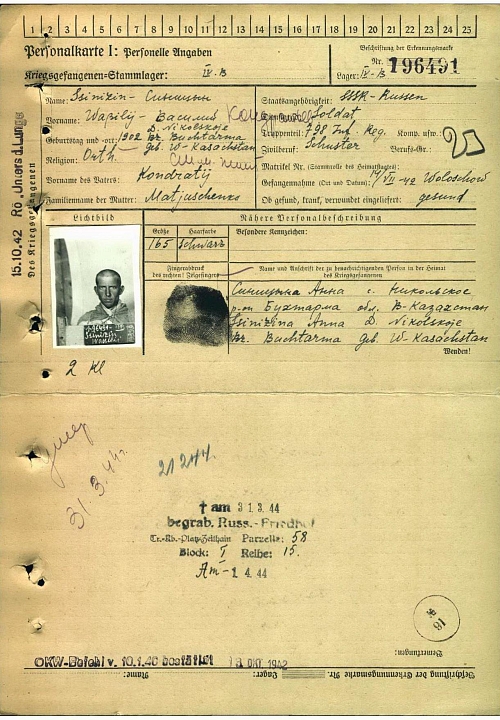 1 2 3 4 5 6 7 8 9 10 11 12 13 14 15 16 17 18 19 20 21 22 23 24 25
Personalkarte I: Personelle Angaben
Kriegsgefangenen-Stammlager: IV-B
Beschriftung der Erkennungsmarke
Nr. 196491
Lager: IV-B
Name: Ssinizin - Синицын
Vorname: Wasilij - Василий
Geburtstag und -ort: 1902 D. Nikolskoje
Bz. Buchtarma
geb. W-Kasachstan
Religion: Orth.
Vorname des Vaters: Kondratij
Familienname der Mutter: Matjuschenko
Staatsangehörigkeit: SSSR-Russen
Soldat
Truppenteil: 798 Inf. Reg. Komp. usw.
Zivilberuf: Schuster Berufs-Gr.:
Matrikel Nr. (Stammrolle des Heimatstaates):
Gefangennahme (Ort und Datum): VII-42 Woloschow
Ob gesund, krank, verwundet eingeliefert: gesund
15.10.42
Des Kriegsgefangenen
Lichtbild
Nähere Personalbeschreibung
Größe Haarfarbe Besondere Kennzeichen:
165 Schwarz
Fingerabdruck
des rechten! Zeigefingers
Name und Anschrift der zu benachrichtigenden Person in der Heimat
des Kriegsgefangenen
Синицына Анна с. Никольское
р-он Бухтарма обл. В-Казахстан
Ssinizina Anna D. Nikolskoje
Bz. Buchtarma geb. W-Kasachstan
Wenden!
Ssinizin
2 Kl
умер
31.3.44г.
21244
† am 31.3.44
begrab. Russ.-Friedhof
Tr.-Üb.-Platz Zeithain Parzelle: 58
Block: I Reihe: 15.
Am - 1 4 44
Bemerkungen:
OKW-Befehl v. 10.1.40 bestätigt OKT 1942
Beschriftung der Erkennungsmarke Nr.
Lager:
Name: